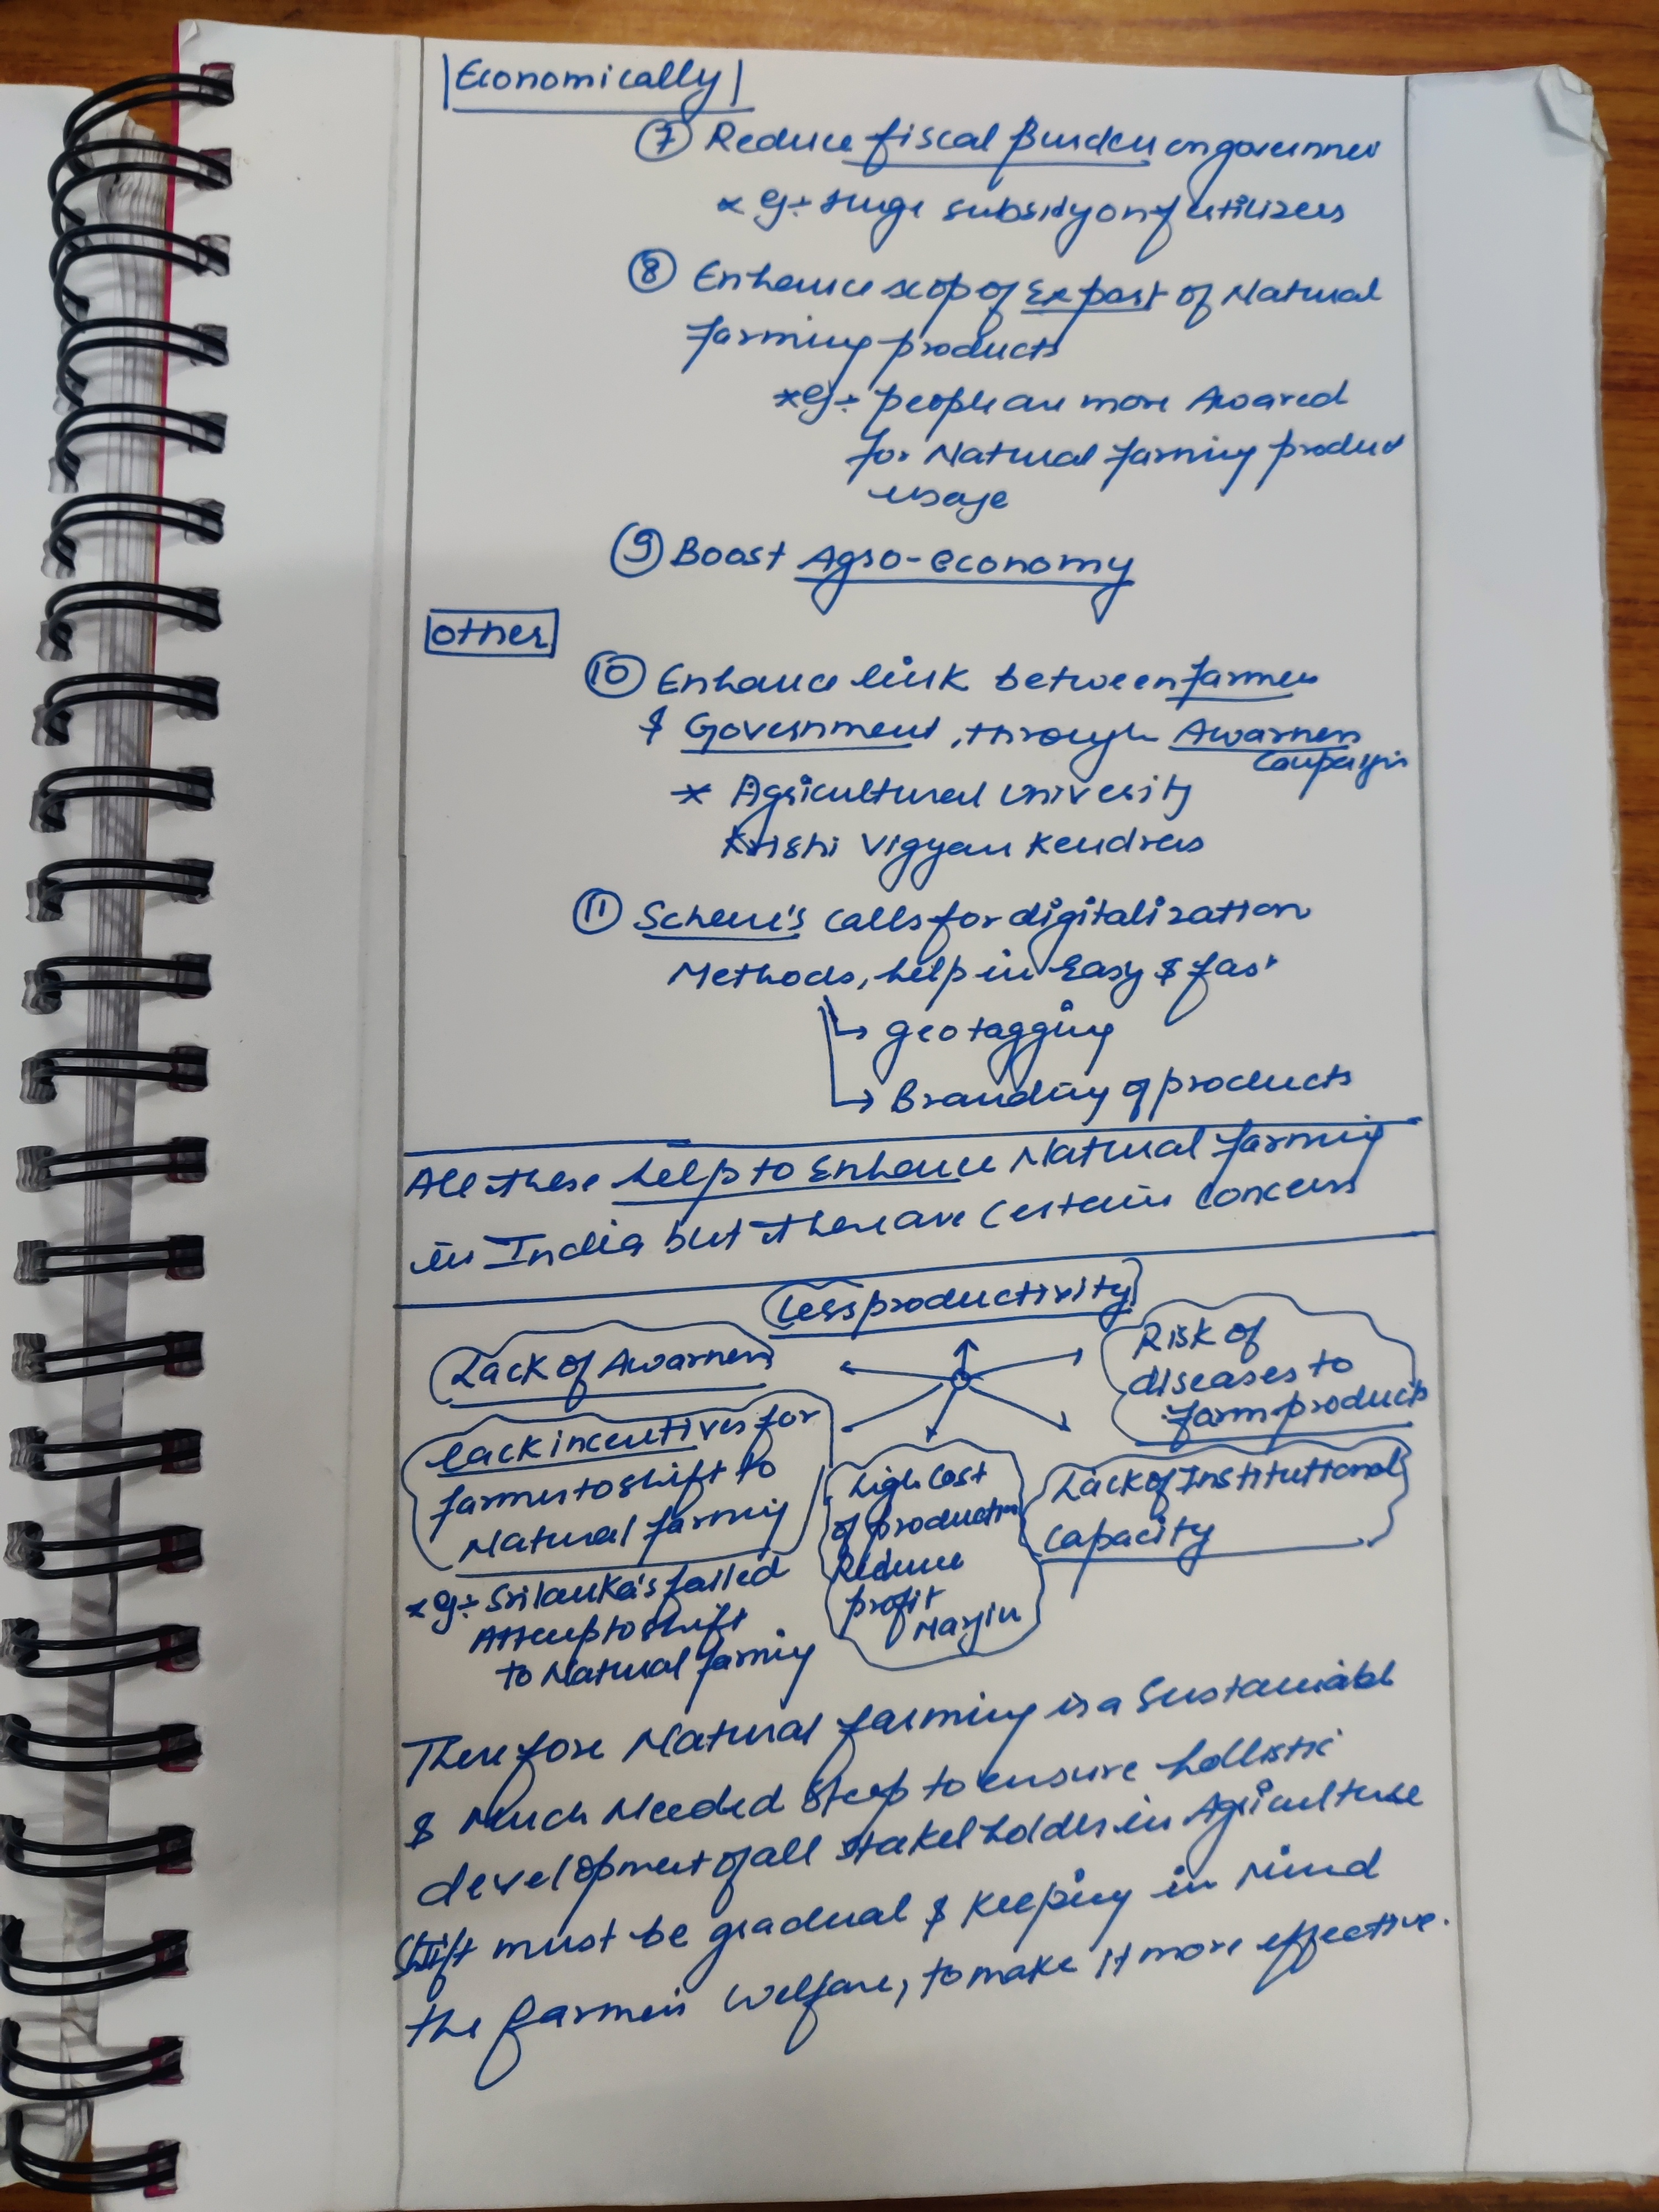 Economically
⑦ Reduce fiscal Burden on governmen
* eg:- Huge subsidy on fertilizers
⑧ Enhance scop of Export of Natural
farming products
* eg:- people are more Awared
for Natural farming product
usage
⑨ Boost Agro-economy
other
⑩ Enhance link between farmers
& Government, through Awarness
Campaign
* Agricultural University
Krishi Vigyan Kendras
⑪ Scheme's calls for digitalization
Methods, help in Easy & fast
→ geotagging
→ Branding of products
All these help to Enhance Natural farming
in India but there are certain concerns
Less productivity
Lack of Awarness
Risk of
diseases to
farm products
lack incentives for
farmer to shift to
Natural farming
* eg:- Srilanka's failed
Attempt to shift
to Natural farming
high Cost
of production
Reduce
profit
Margin
Lack of Institutional
capacity
Therefore Natural farming is a Sustainable
& Much Needed Step to ensure hollistic
development of all stakeholder in Agriculture
Shift must be gradual & keeping in Mind
the farmer's welfare, to make it more effective.